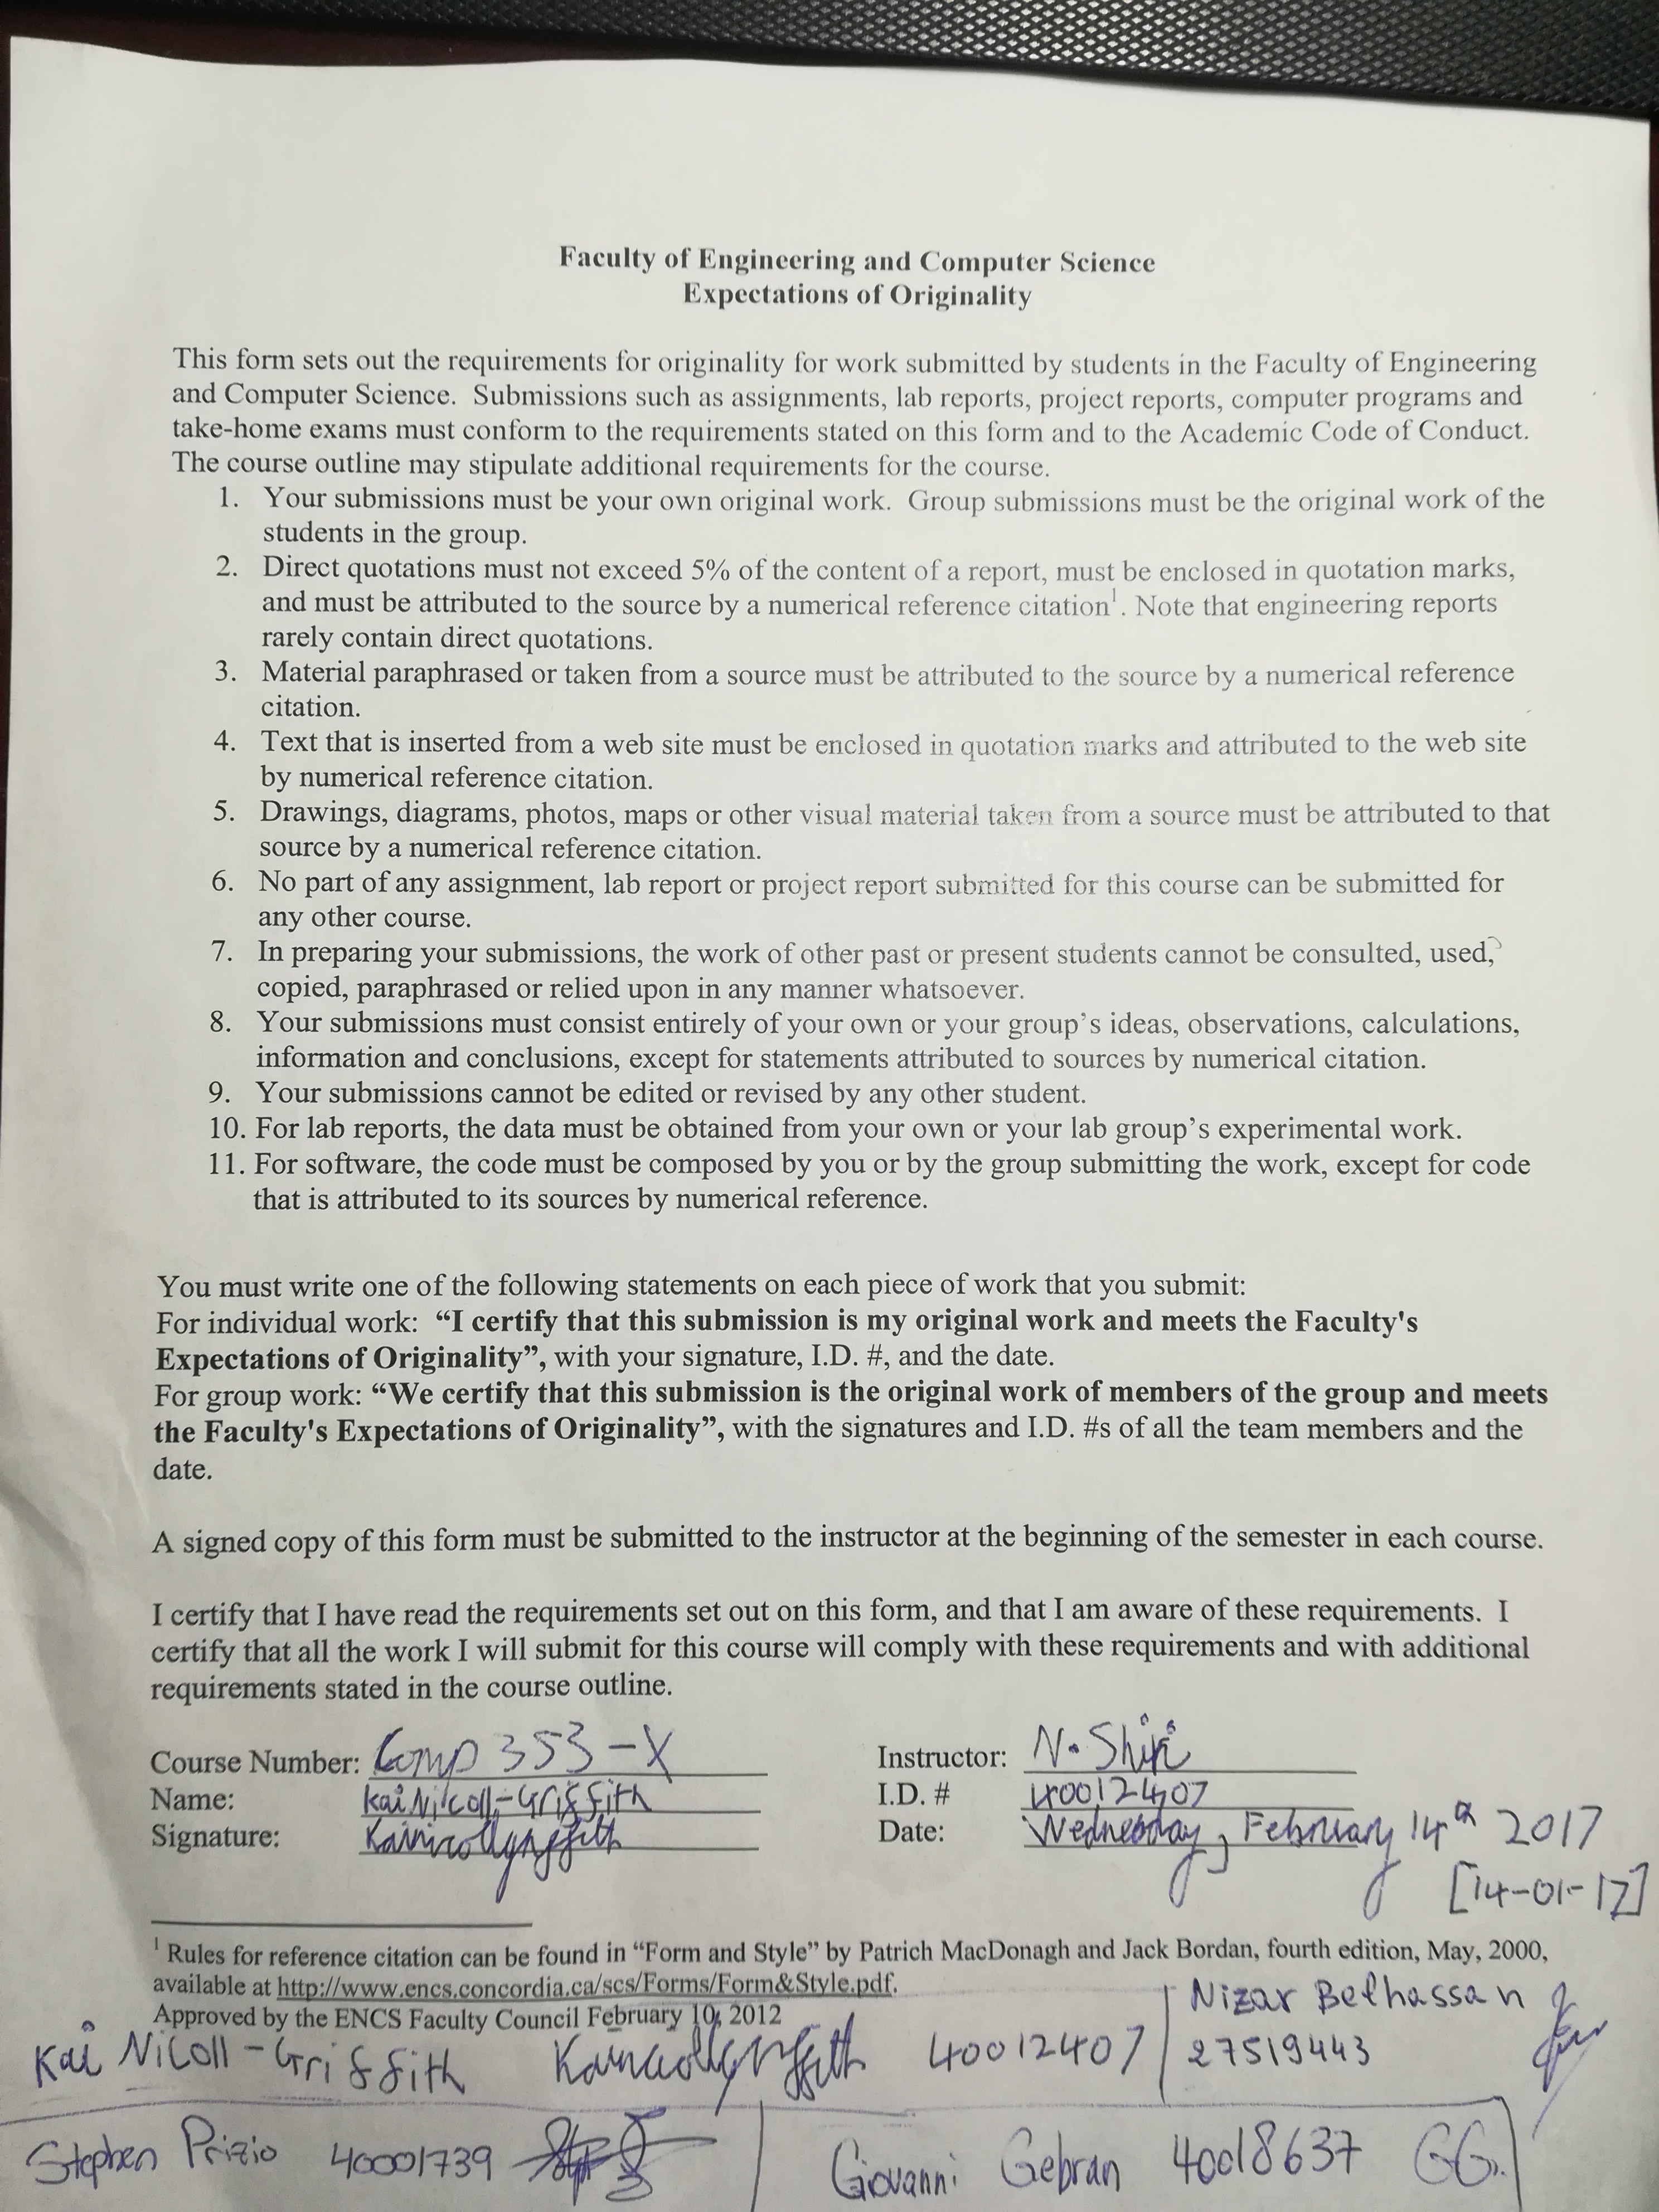 Faculty of Engineering and Computer Science
Expectations of Originality
This form sets out the requirements for originality for work submitted by students in the Faculty of Engineering
and Computer Science. Submissions such as assignments, lab reports, project reports, computer programs and
take-home exams must conform to the requirements stated on this form and to the Academic Code of Conduct.
The course outline may stipulate additional requirements for the course.
1. Your submissions must be your own original work. Group submissions must be the original work of the
students in the group.
2. Direct quotations must not exceed 5% of the content of a report, must be enclosed in quotation marks,
and must be attributed to the source by a numerical reference citation¹. Note that engineering reports
rarely contain direct quotations.
3. Material paraphrased or taken from a source must be attributed to the source by a numerical reference
citation.
4. Text that is inserted from a web site must be enclosed in quotation marks and attributed to the web site
by numerical reference citation.
5. Drawings, diagrams, photos, maps or other visual material taken from a source must be attributed to that
source by a numerical reference citation.
6. No part of any assignment, lab report or project report submitted for this course can be submitted for
any other course.
7. In preparing your submissions, the work of other past or present students cannot be consulted, used,
copied, paraphrased or relied upon in any manner whatsoever.
8. Your submissions must consist entirely of your own or your group's ideas, observations, calculations,
information and conclusions, except for statements attributed to sources by numerical citation.
9. Your submissions cannot be edited or revised by any other student.
10. For lab reports, the data must be obtained from your own or your lab group's experimental work.
11. For software, the code must be composed by you or by the group submitting the work, except for code
that is attributed to its sources by numerical reference.
You must write one of the following statements on each piece of work that you submit:
For individual work: “I certify that this submission is my original work and meets the Faculty's
Expectations of Originality”, with your signature, I.D. #, and the date.
For group work: “We certify that this submission is the original work of members of the group and meets
the Faculty's Expectations of Originality”, with the signatures and I.D. #s of all the team members and the
date.
A signed copy of this form must be submitted to the instructor at the beginning of the semester in each course.
I certify that I have read the requirements set out on this form, and that I am aware of these requirements. I
certify that all the work I will submit for this course will comply with these requirements and with additional
requirements stated in the course outline.
Course Number: Comp 353-X Instructor: N. Shiri
Name: Kai Nicoll-Griffith I.D. # 40012407
Signature: Kainicollgriffith Date: Wednesday, February 14th 2017
[14-01-17]
¹ Rules for reference citation can be found in “Form and Style” by Patrich MacDonagh and Jack Bordan, fourth edition, May, 2000,
available at http://www.encs.concordia.ca/scs/Forms/Form&Style.pdf.
Approved by the ENCS Faculty Council February 10, 2012
Kai Nicoll-Griffith Kainicollgriffith 40012407
Nizar Belhassan
27519443
Stephen Prizio 40001739
Giovanni Gebran 40018637 GG.